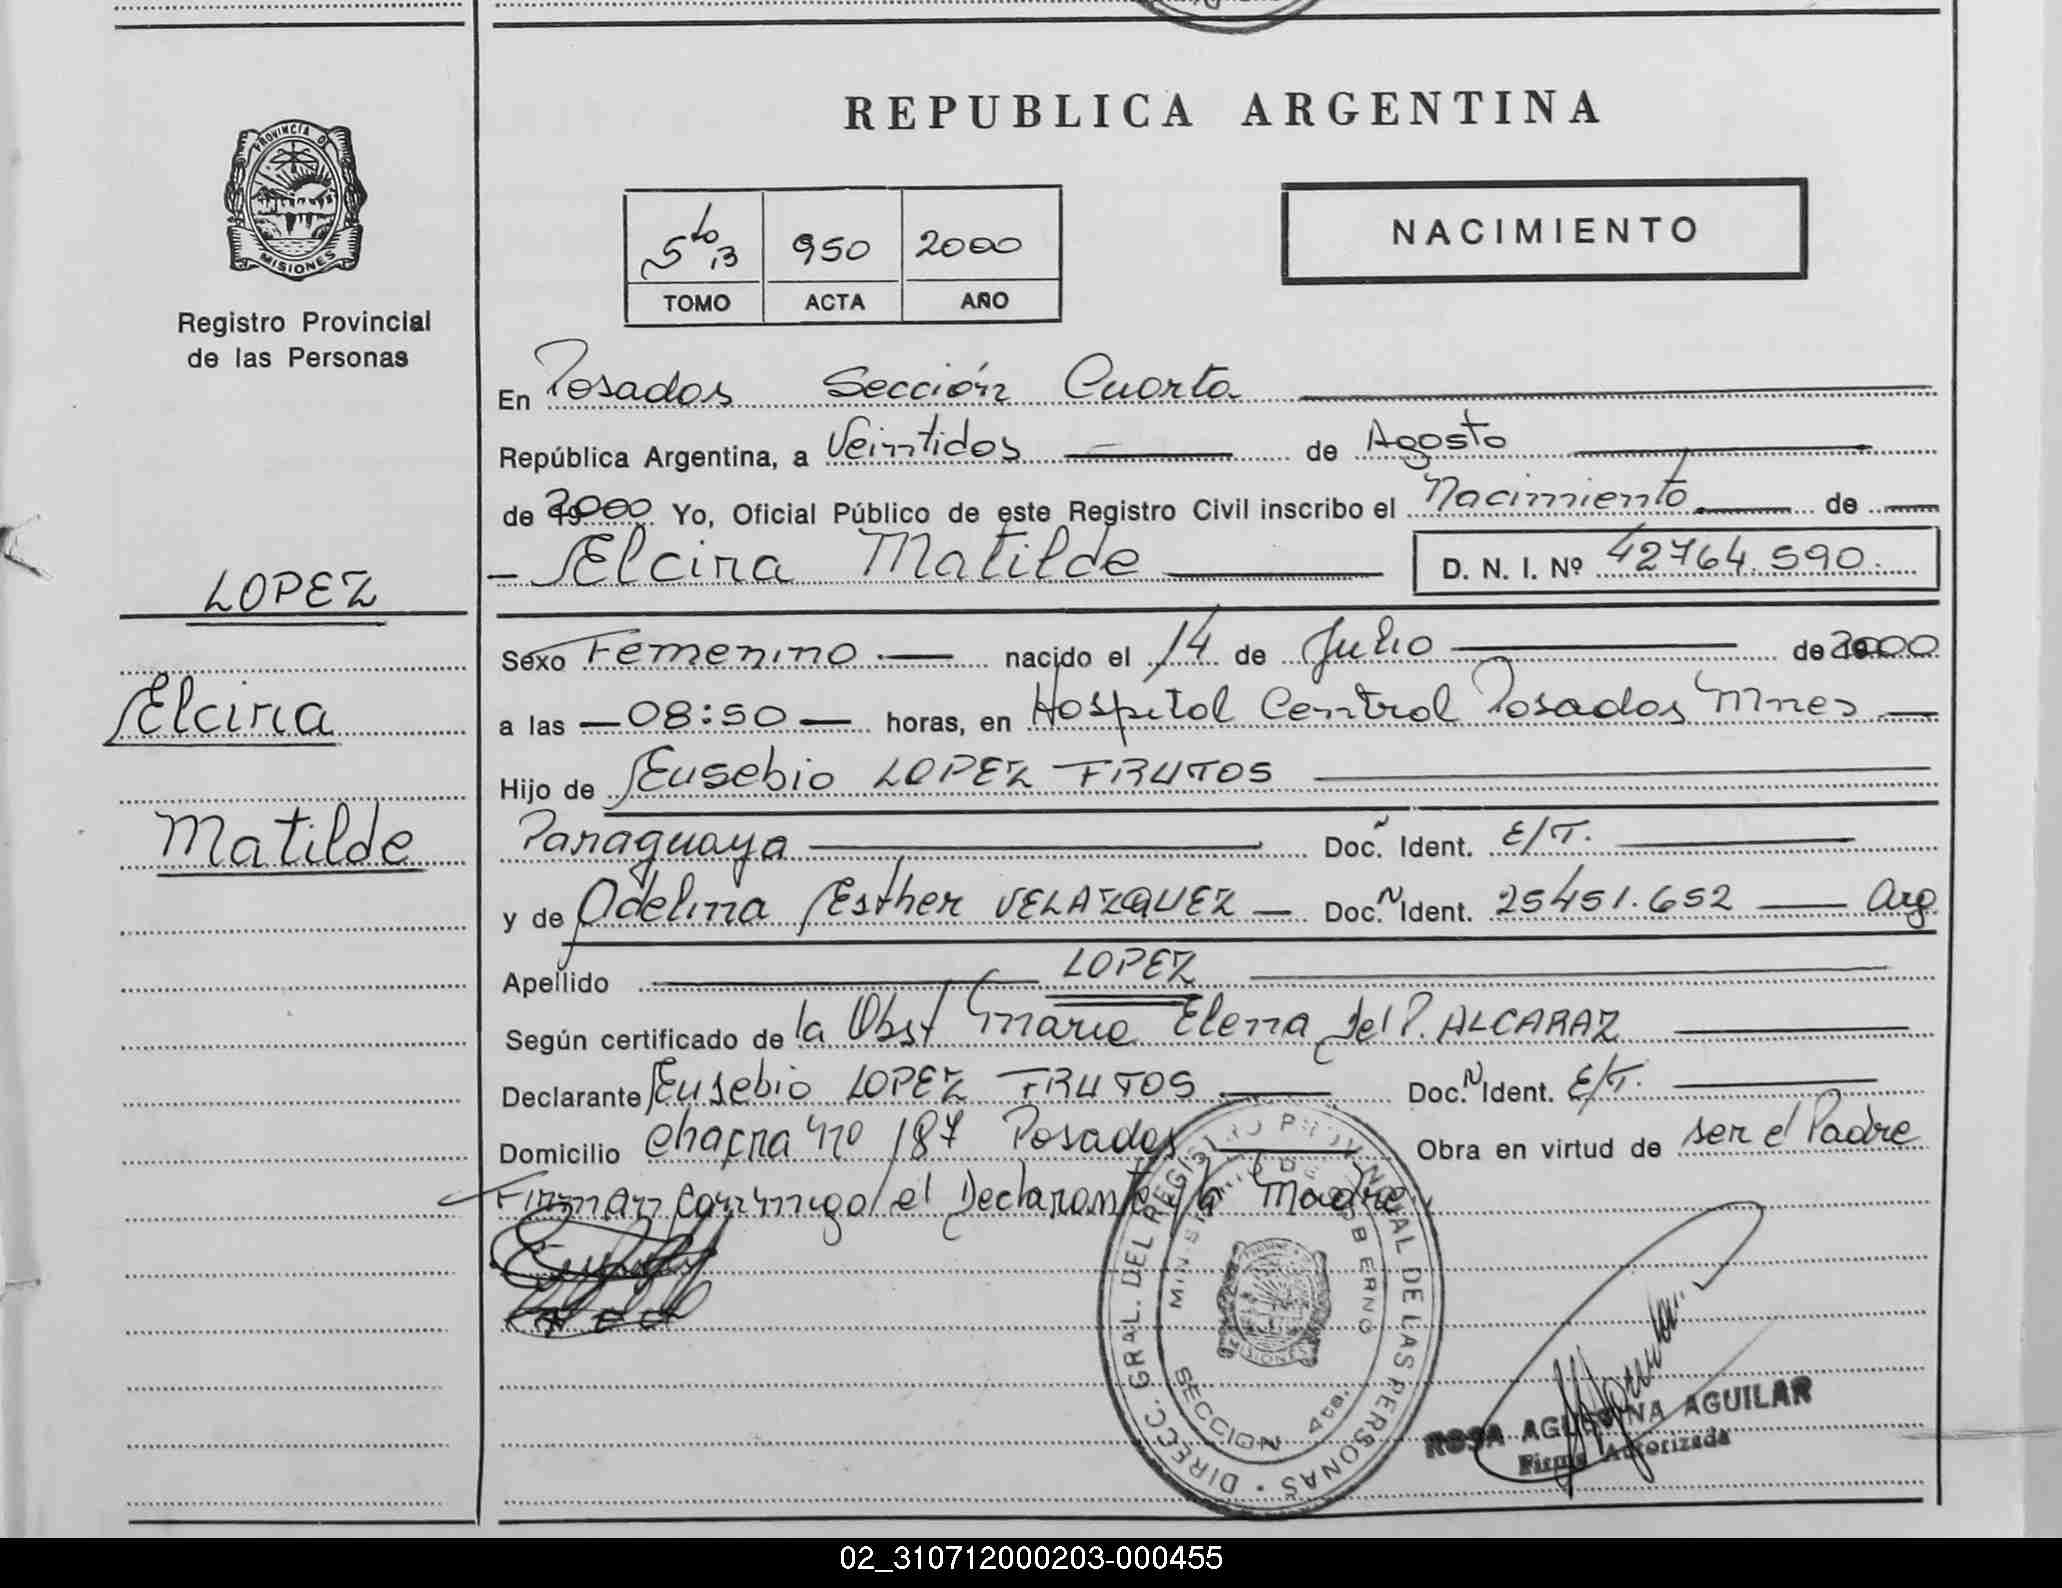 REPUBLICA ARGENTINA
PROVINCIA D
MISIONES
Registro Provincial
de las Personas
5to 13 950 2000
TOMO ACTA AÑO
NACIMIENTO
En Posadas Sección Cuarta
República Argentina, a Veintidos de Agosto
de 2000 Yo, Oficial Público de este Registro Civil inscribo el Nacimiento de
Elcira Matilde D. N. I. Nº 42764.590.
LOPEZ
Elcira
Matilde
Sexo Femenino nacido el 14 de Julio de 2000
a las 08:50 horas, en Hospital Central Posadas Mnes
Hijo de Eusebio LOPEZ FRUTOS
Paraguaya Doc. Ident. E/T.
y de Odelina Esther VELAZQUEZ Doc. Ident. 25451.652 Arg
Apellido LOPEZ
Según certificado de la Obst Maria Elena del P. ALCARAZ
Declarante Eusebio LOPEZ FRUTOS Doc. Ident. E/T.
Domicilio Chacra Nro 187 Posadas Obra en virtud de ser el Padre
Firman conmigo el Declarante y la Madre
DIRECC. GRAL. DEL REGISTRO PROVINCIAL DE LAS PERSONAS
MINISTERIO DE GOBIERNO
SECCION 4ta.
MISIONES
ROSA AGUSTINA AGUILAR
Firma Autorizada
02_310712000203-000455